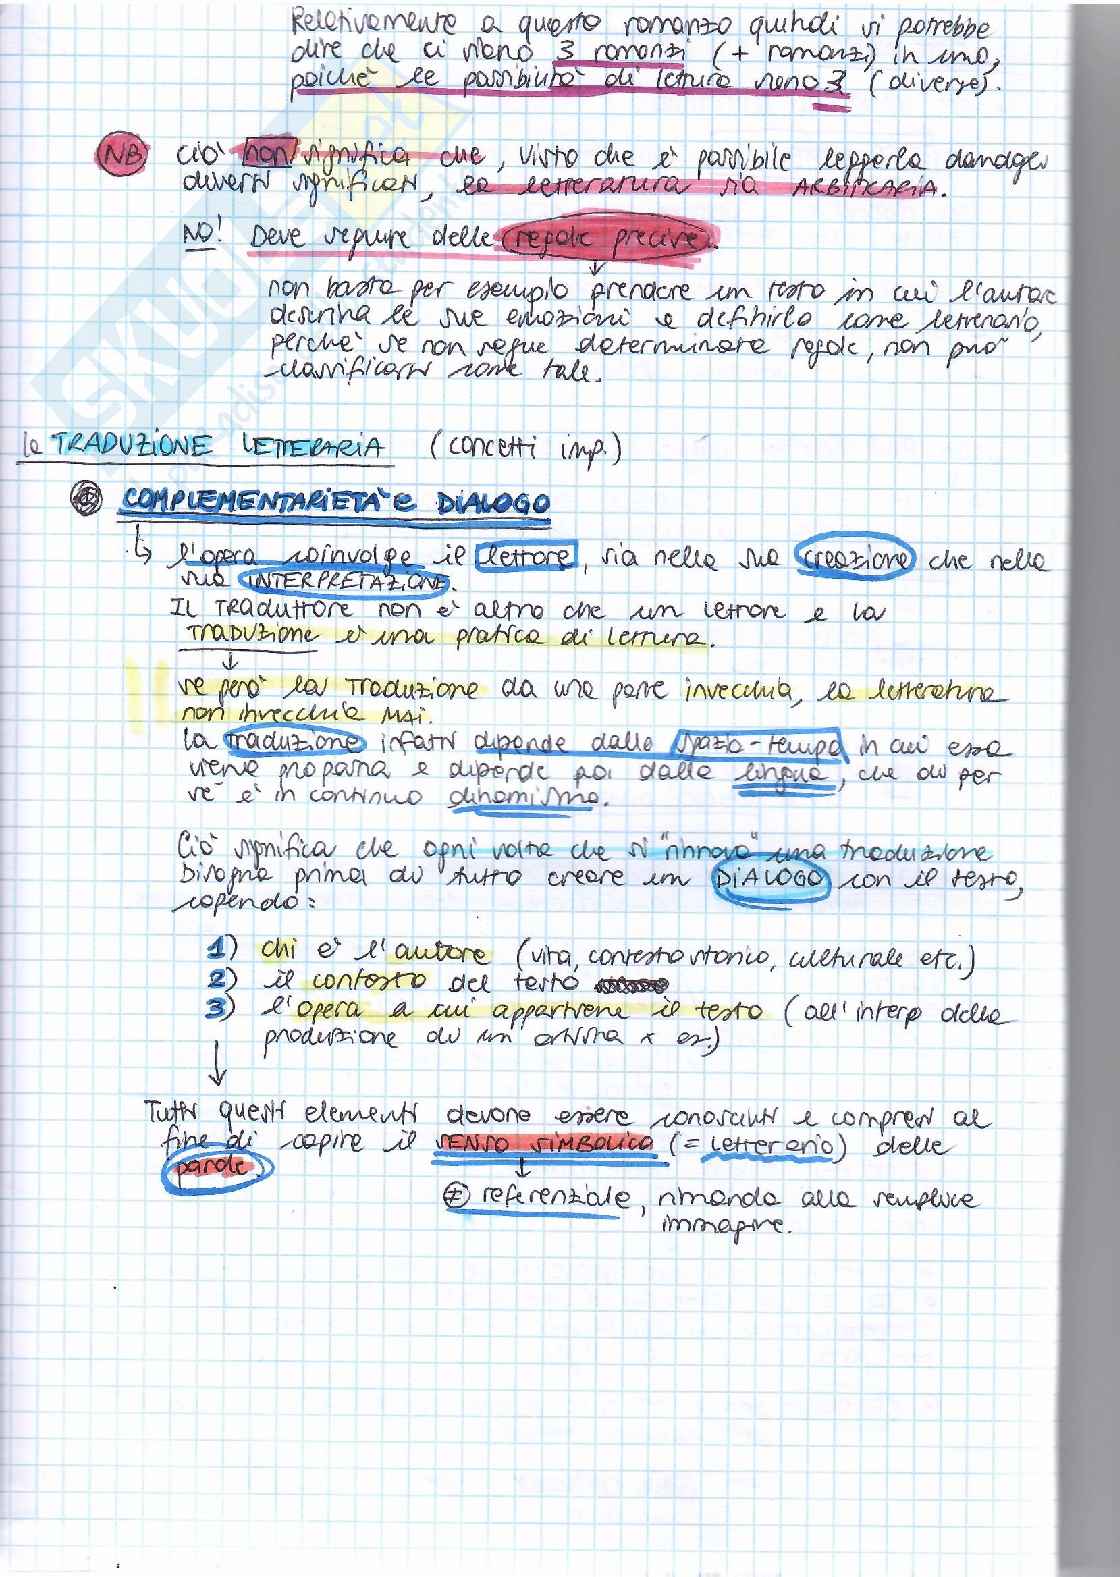 Relativamente a questo romanzo quindi si potrebbe
dire che ci siano 3 romanzi (+ romanzi) in uno,
poiché le possibilità di lettura sono 3 (diverse).
NB ciò non significa che, visto che è possibile leggerla dandogli
diversi significati, la letteratura sia ARBITRARIA.
NO! Deve seguire delle regole precise.
non basta per esempio prendere un testo in cui l'autore
descriva le sue emozioni e definirlo come letterario,
perché se non segue determinate regole, non può
classificarsi come tale.
la TRADUZIONE LETTERARIA (concetti imp.)
COMPLEMENTARIETÀ e DIALOGO
↳ l'opera coinvolge il lettore, sia nella sua creazione che nella
sua INTERPRETAZIONE.
Il TRADUTTORE non è altro che un lettore e la
TRADUZIONE è una pratica di lettura.
↓
se però la TRADUZIONE da una parte invecchia, la letteratura
non invecchia MAI.
la traduzione infatti dipende dallo spazio-tempo in cui essa
viene proposta e dipende poi dalla lingua, che di per
sé è in continuo dinamismo.
Ciò significa che ogni volta che si "rinnova" una traduzione
bisogna prima di tutto creare un DIALOGO con il testo,
capendo:
1) chi è l'autore (vita, contesto storico, culturale etc.)
2) il contesto del testo
3) l'opera a cui appartiene il testo (all'interno della
produzione di un artista x es.)
↓
Tutti questi elementi devono essere conosciuti e compresi al
fine di capire il SENSO SIMBOLICO (= letterario) delle
parole.
↓
≠ referenziale, rimanda alla semplice
immagine.